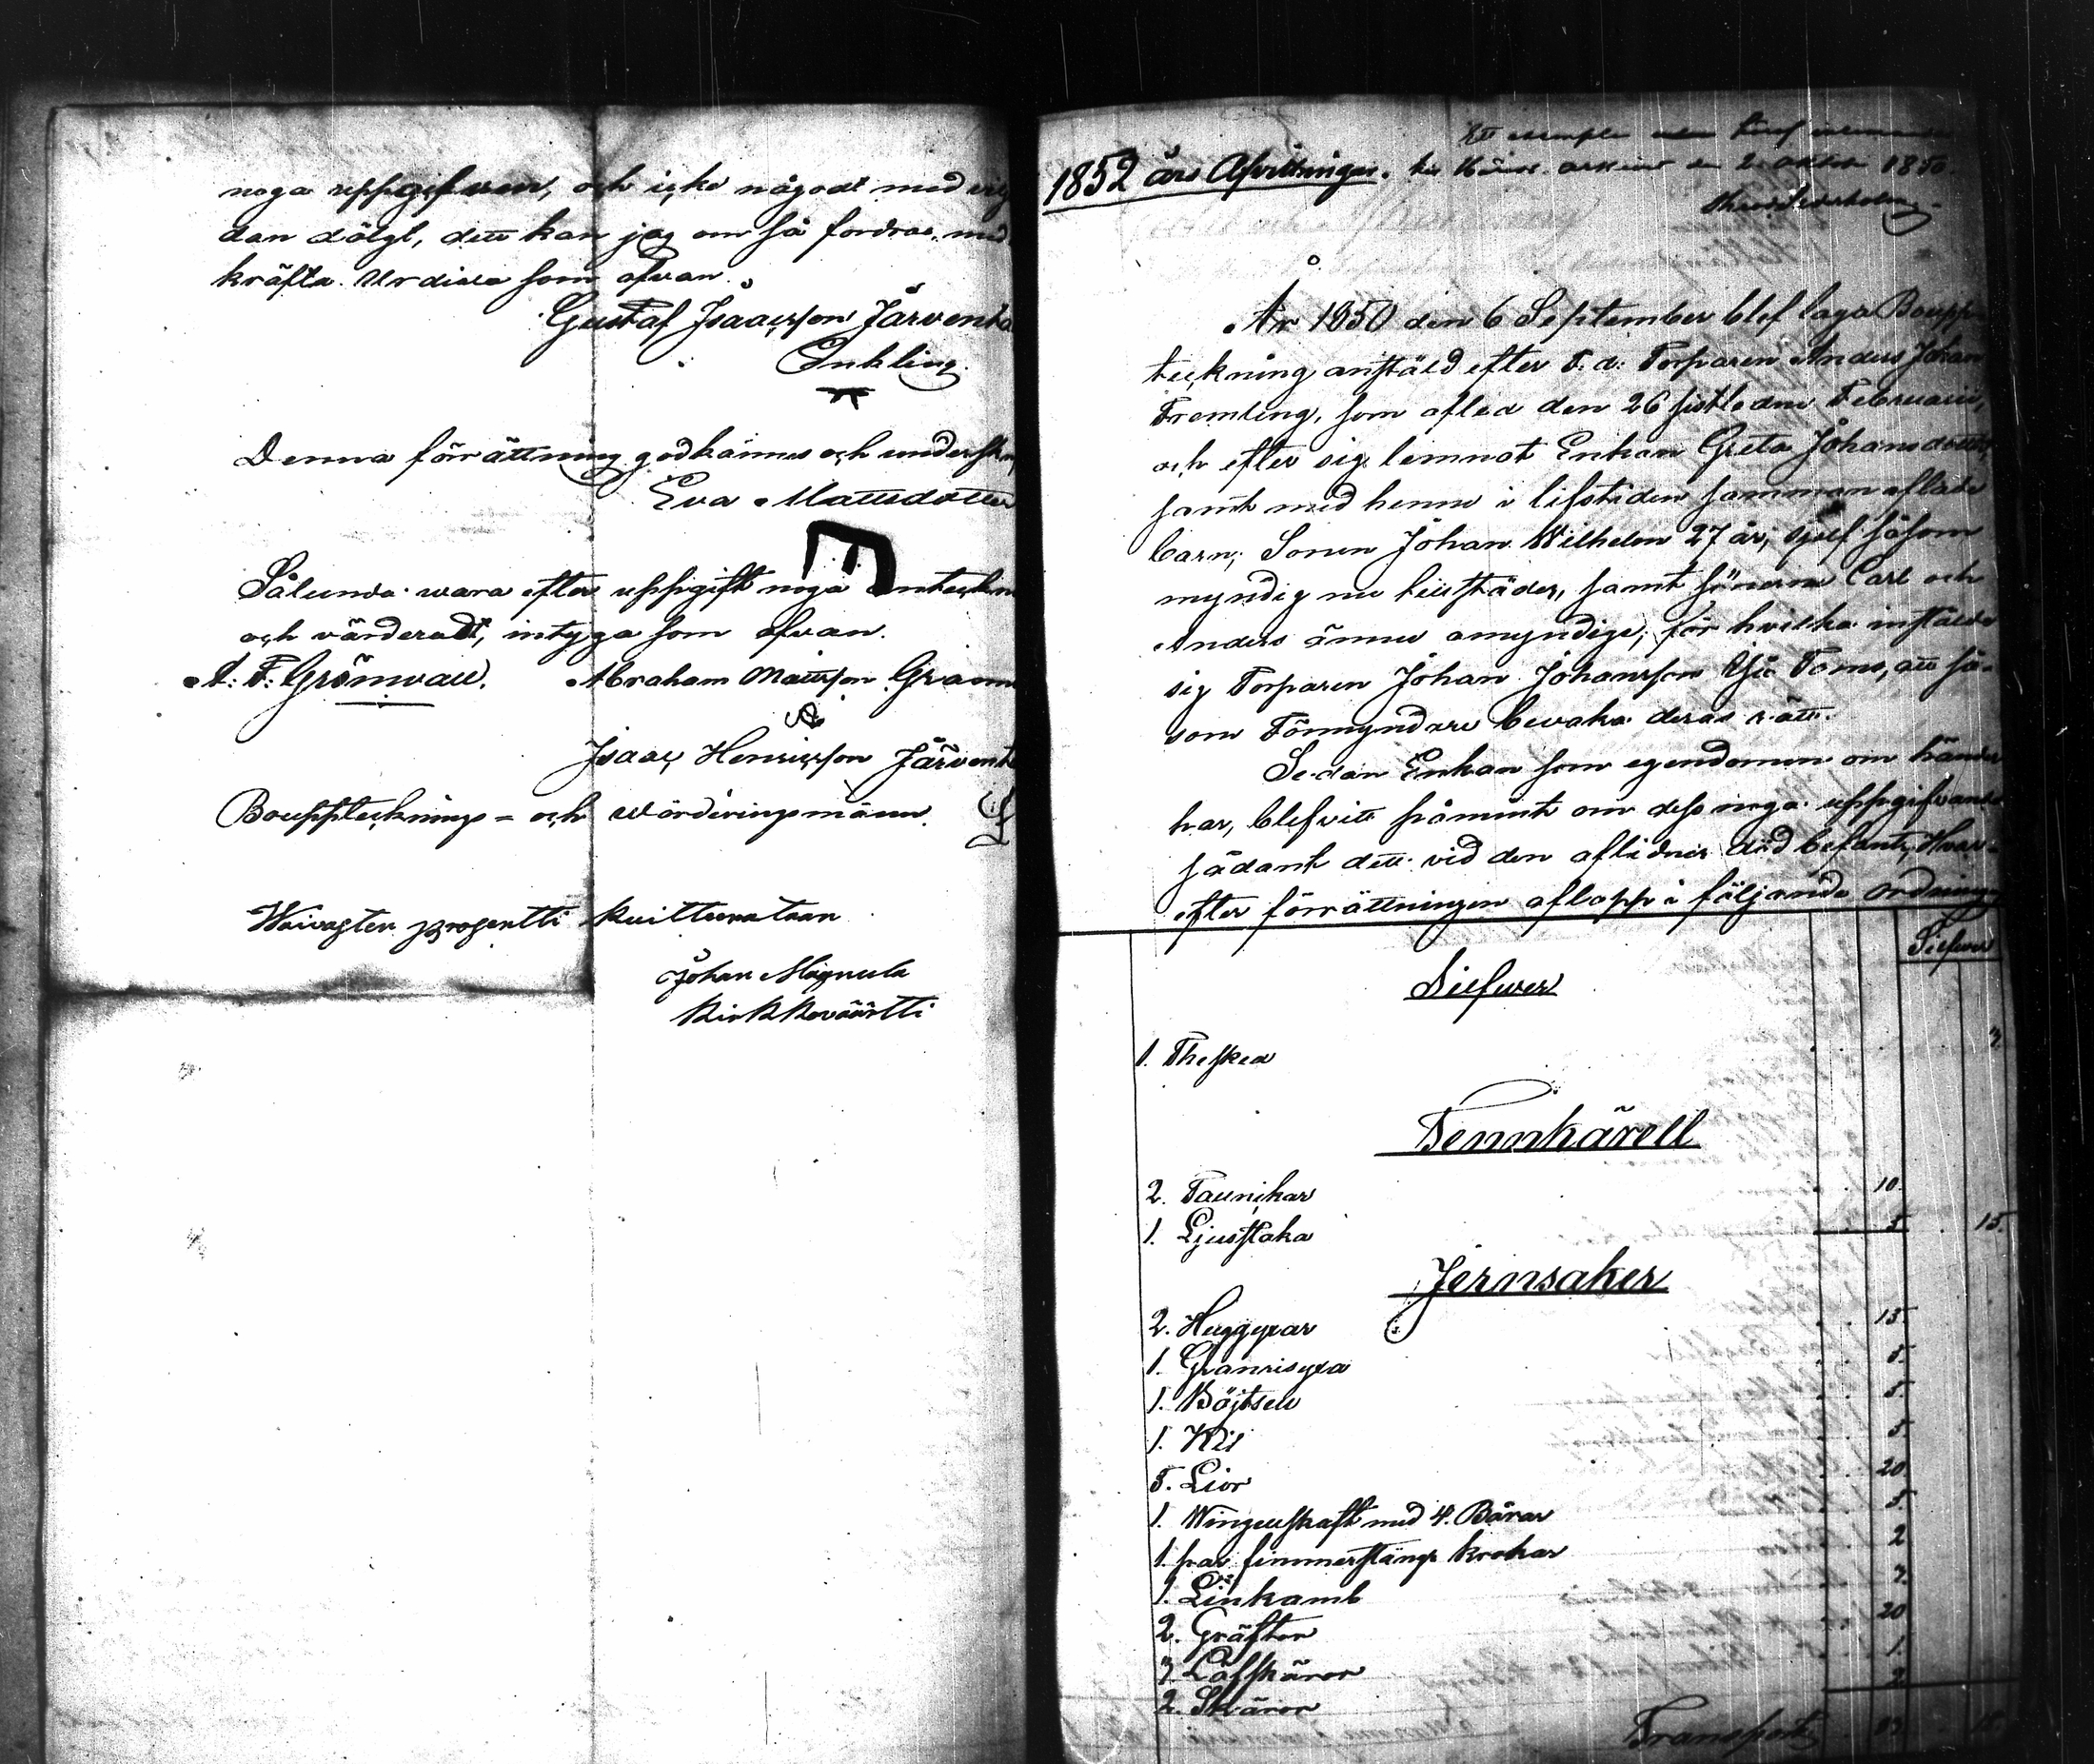 noga uppgifven, och icke något med
dan dölgt, dett kan jag om så fordras, med
kräfta. Urdiale som ofvan.
Gustaf Isaacsson Järvent
Enkling.
Denna förrättning godkännes och underskr
Eva Mattsdotter
Sålunda wara efter uppgift noga anteckn
och värderadt, intyga som ofvan.
A. F. Grönwall. Abraham Mattsson Grann
Isaac Henricsson Järvent
Bouppteknings- och wärderingsmänn.
Waivasten prosentti kuitteerataan
Johan Mägnula
Kirkkoväärtti
1852 års Afvittringar.
exemplar
den 2 October 1850.
År 1850 den 6 September blef laga Boupp
teckning anstäld efter F. d. Torparen Anders Johan
Fremling, som afled den 26 sistledne Februarii,
och efter sig lemnat Enkan Greta Johansdotter,
samt med henne i lifstiden samman aflade
barn; Sonen Johan Wilhelm 27 år, sjelf såsom
myndig nu tillstädes, samt sönerne Carl och
Anders ännu omyndige, för hvilka instälde
sig Torparen Johan Johansson Toms, att så-
som Förmyndare bevaka deras rätt.
Sedan Enkan som egendomen om händer
har, blifvit påmint om dess noga uppgifvande
sådant dett vid den aflidnes död befants, Hvar-
efter förrättningen aflopp i följande ordning
Silfwer
Silfwer
1. Thesked
Tennkärell
2. Tallrickar 10.
1. Ljusstaka 5 15.
Jernsaker
2. Huggyxar 15.
1. Granrisyxa 5.
1. Böjtsell 5.
1. Kil 5.
5. Lior 20.
1. Wingelskaft med 4. Bårar 5.
1. par timmerstångs krokar 2
1. Linkamb
2. Gräftor 20
Löfskäror 1.
2. Skäror 2
Transport